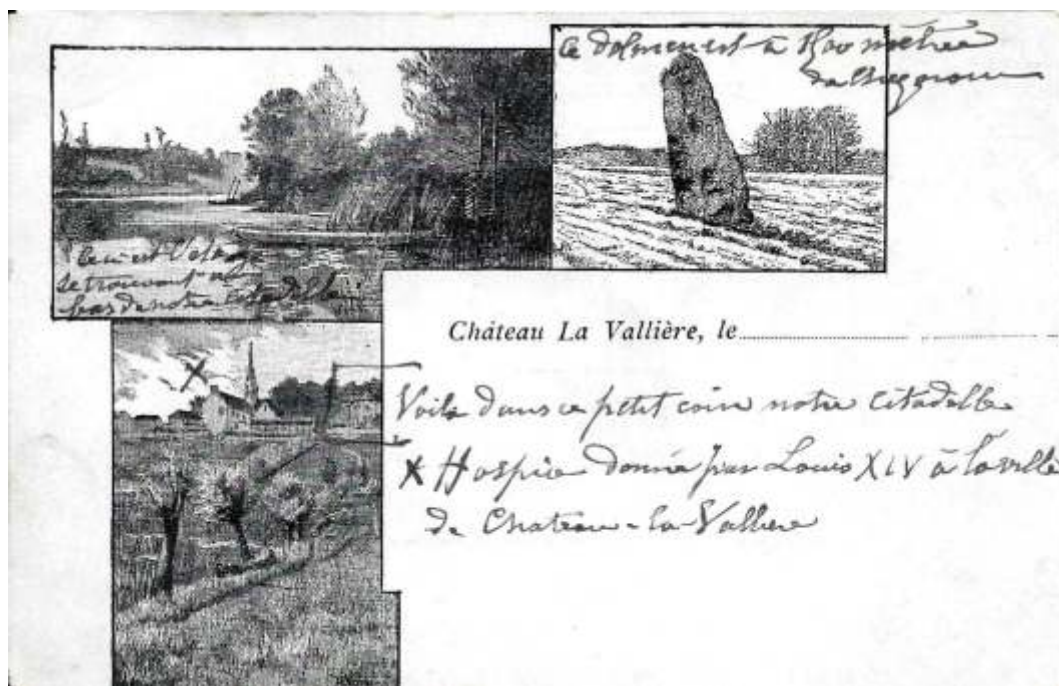 ce dolmen est à 1500 mètres
ceci est l'étang
se trouvant au
bas de notre citadelle
Château La Vallière, le
Voila dans ce petit coin notre citadelle
X Hospice donné par Louis XIV à la ville
de Chateau-la-Valliere
X